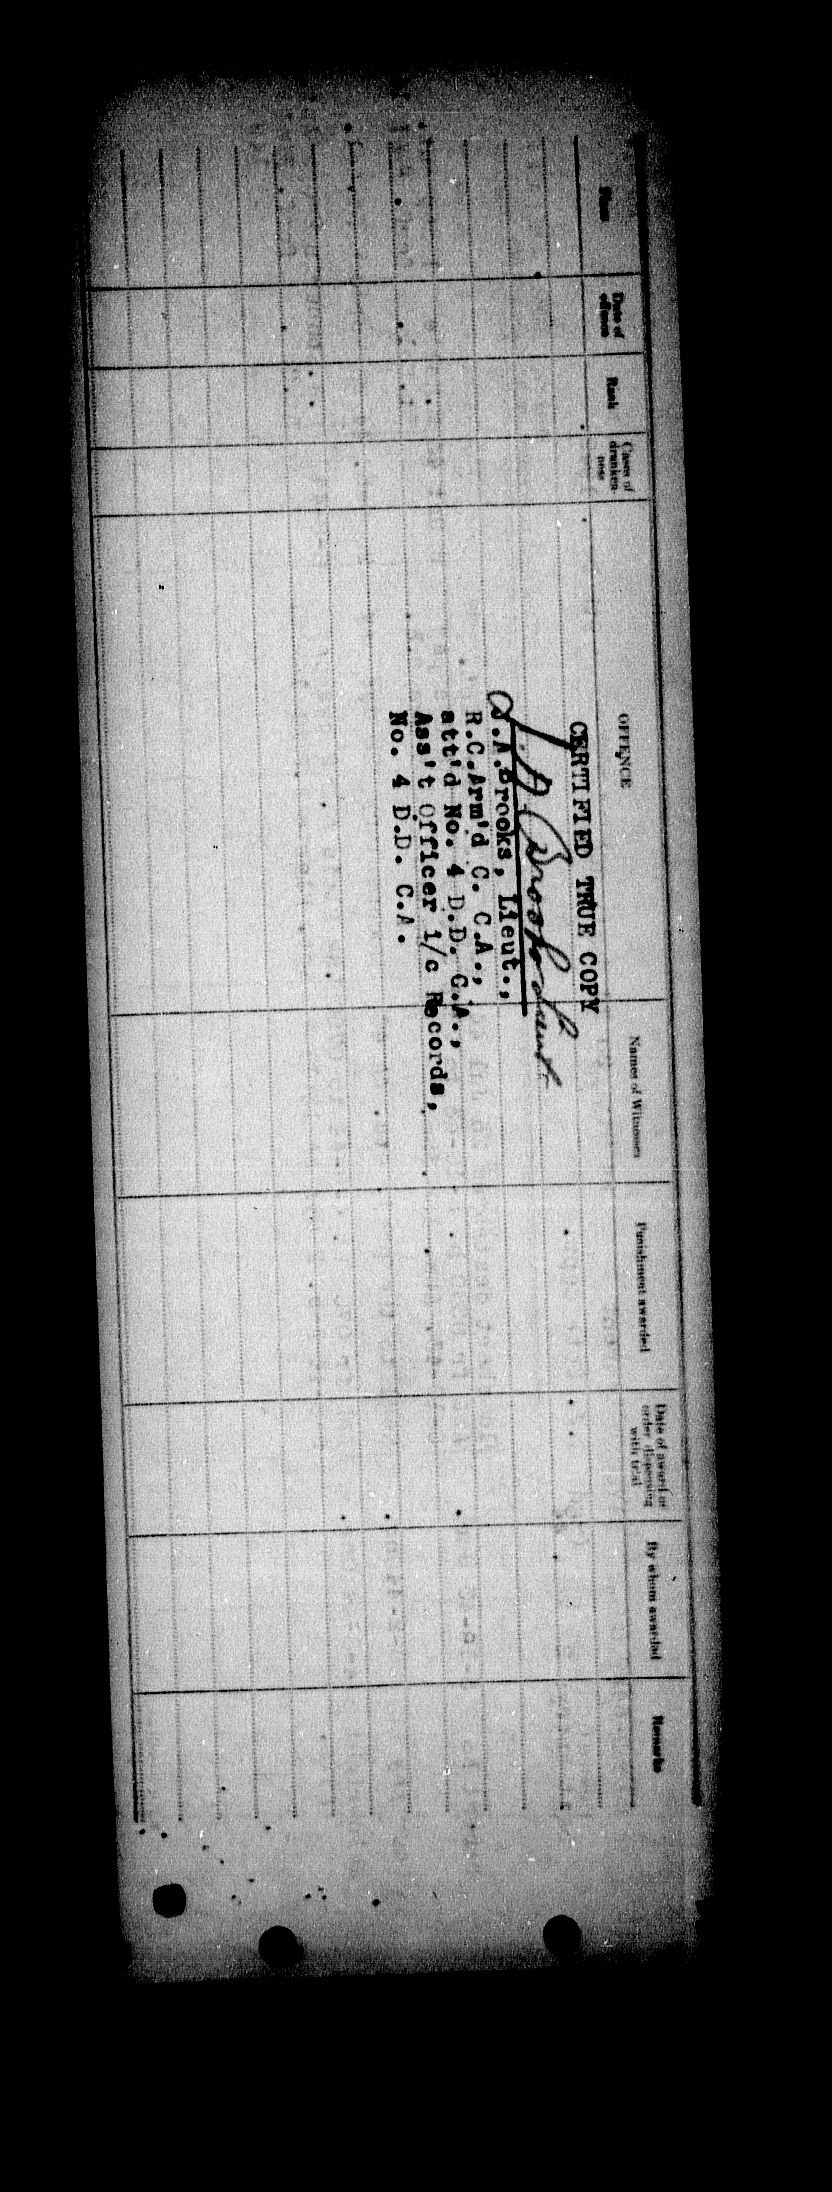 Place
Date of offence
Rank
Cases of drunkenness
OFFENCE
Names of Witnesses
Punishment awarded
Date of award or order dispensing with trial
By whom awarded
Remarks
CERTIFIED TRUE COPY
J. A. Brooks Lieut.
J.A.Brooks, Lieut.,
R.C.Arm'd C. C.A.,
att'd No. 4 D.D. C.A.,
Ass't Officer i/c Records,
No. 4 D.D. C.A.